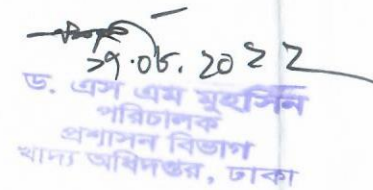 ২৭.০৬.২০২২
ড. এস এম মুহসিন
পরিচালক
প্রশাসন বিভাগ
খাদ্য অধিদপ্তর, ঢাকা